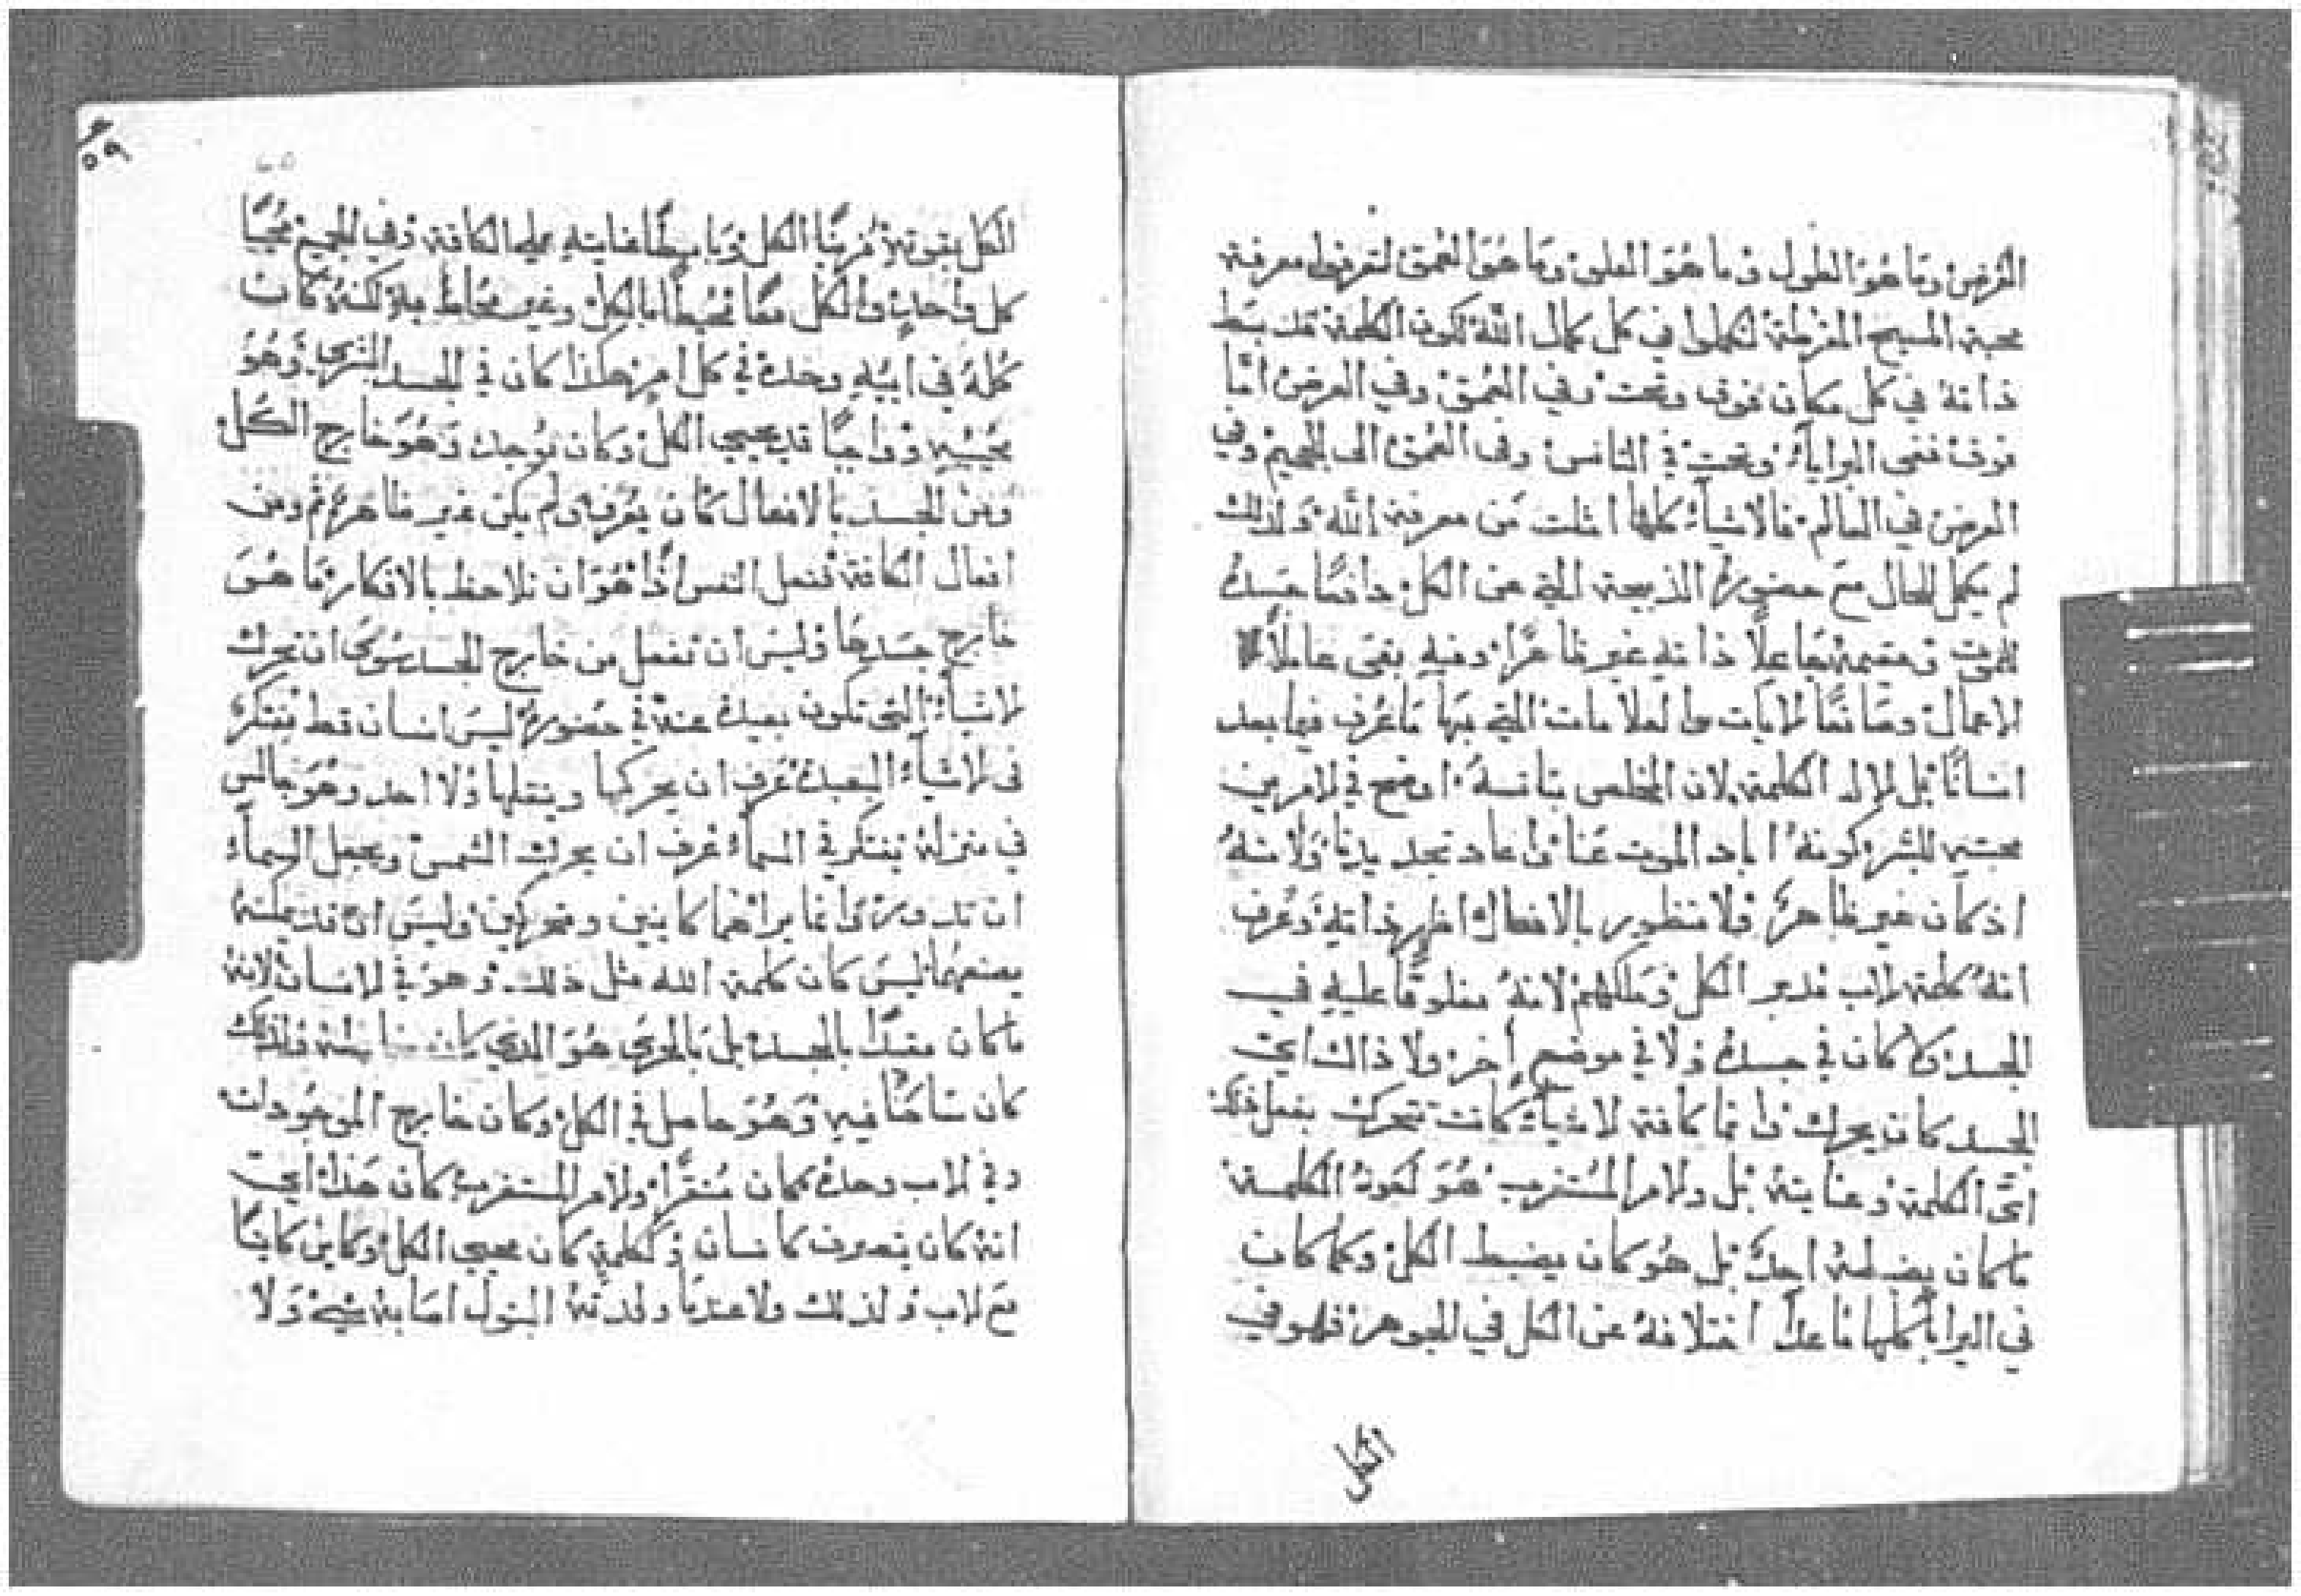 العرض وما هو الطول وما هو العلو وما هو العمق لتعرفوا معرفة
محبة المسيح المفرطة لتكملوا في كل كمال الله لكون الكلمة قد بسط
ذاته في كل مكان فوق وتحت وفي العمق وفي العرض اما
فوق ففي البرايا وتحت في التانس وفي العمق الى الجحيم وفي
العرض في العالم فالاشياء كلها امتلت من معرفة الله ولذلك
لم يكمل للحال مع حضوره الذبيحة التي عن الكل دافعا جسده
للموت ومقيمه جاعلا ذاته غير ظاهرا وفيه بقى عاملا
الاعمال وصانعا الايات والعلامات التي بها ما عرف فيما بعد
انسانا بل الاله الكلمة لان المخلص بتانسه اوضح في الامرين
محبته للبشر كونه اباد الموت عنا واعاد تجديدنا ولانه
اذ كان غير ظاهر ولا منظور بالافعال اظهر ذاته وعرف
انه كلمة الاب مدبر الكل وملكهم لانه مغلوقا عليه في
الجسد وكان في جسده ولا في موضع أخر ولا ذاك اي
الجسد كان يحرك وانما كافة الاشياء كانت تتحرك بفعل
اي الكلمة وعنايته بل والامر المستغرب هو لكونه الكلمة
ما كان يضبطه احد بل هو كان يضبط الكل وكما كان
في البرايا كلها ما عدا اختلافه عن الكل في الجوهر فهو في
الكل
٥٩
60
الكل بقوته مزينا الكل وباسطا عنايته على الكافة وفي الجميع محييا
كل واحد والكل معا محيطا بالكل وغير محاط به لكنه كان
كله في ابيه وحده في كل امر هكذا كان في الجسد البشري وهو
يحييه وواجبا قد يحيي الكل وكان يوجد وهو خارج الكل
ومن الجسد بالافعال كان يعرف ولم يكن غير ظاهر ثم ومن
افعال الكافة فعمل النفس اذا هو ان تلاحظ بالافكار ما هو
خارج جسدها وليس ان تفعل من خارج الجسد سوى ان تحرك
الاشياء التي تكون بعيده عنه في حضوره ليس انسان قط يفتكر
في الاشياء البعيده عرف ان يحركها وينقلها ولا احد وهو جالس
في منزله يفتكر في السماء عرف ان يحرك الشمس ويجعل السماء
ان تدور وانما يراهما كاينين ومتحركين وليس اي قد يمكنه
يصنعهما ليس كان كلمة الله مثل ذلك وهو في الانسان لانه
ما كان مقيدا بالجسد بل بالحرى هو الذي كان ضابطه فلذلك
كان ساكنا فيه وهو حاصل في الكل وكان خارج الموجودات
وفي الاب وحده كان مستقرا والامر المستغرب كان هذا اي
انه كان يتصرف كانسان وككلمة كان محيي الكل وكابن كاينا
مع الاب ولذلك ولا عندما ولدته البتول اصابه شيء ولا